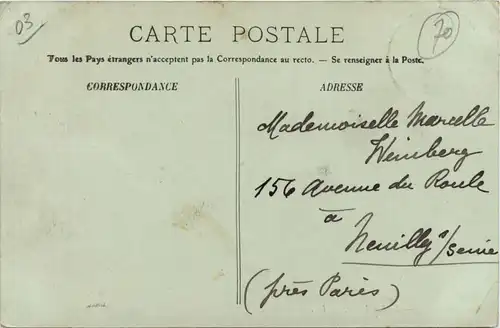 03
70
CARTE POSTALE
Tous les Pays étrangers n'acceptent pas la Correspondance au recto. — Se renseigner à la Poste.
CORRESPONDANCE
ADRESSE
Mademoiselle Marcelle
Weinberg
156 Avenue du Roule
à
Neuilly s/Seine
(près Paris)